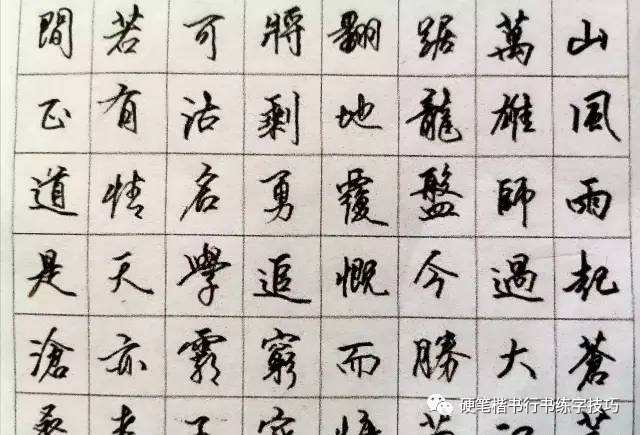 山風雨起蒼
萬雄師過大
踞龍盤今勝
翻地覆慨而
將剩勇追窮
可沽名學霸
若有情天亦
間正道是滄
硬笔楷书行书练字技巧